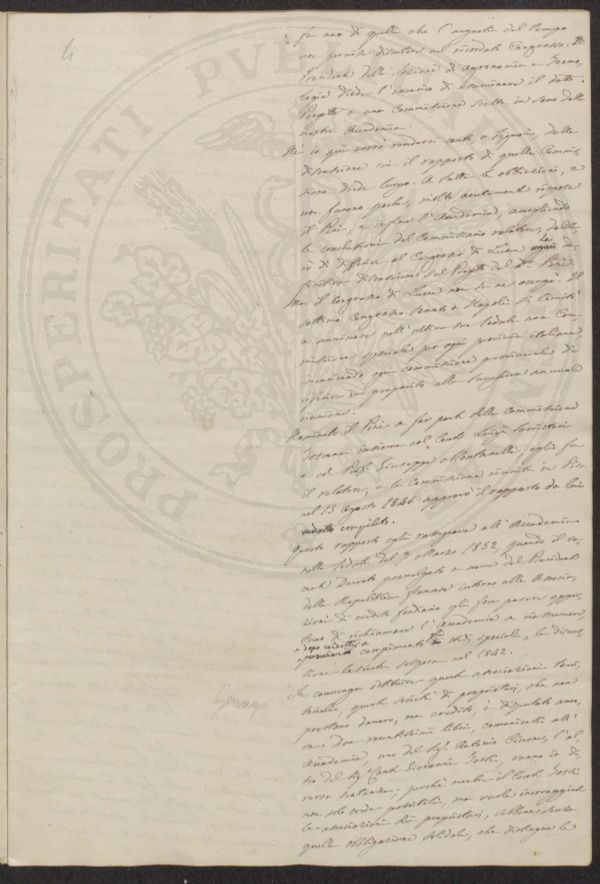 4
fu uno di quelli che l'angustia del tempo
non permise discutere nel ricordato Congresso. Il
Presidente della Sezione di Agronomia e Tecno
logia diede l'incarico di esaminare il detto
Progetto a una Commissione scelta in seno della
nostra Accademia.
Nè io qui vorrò rendervi conto, o Signori, della
discussione cui il rapporto di quella Commis
sione diede luogo. A tutte le obbiezioni, e
non furono poche, molto acutamente rispose
il Pini, e infine l'Accademia, accogliendo
le conclusioni del Commissario relatore, delibe
rò di differire al Congresso di Lucca la de
finitiva discussione sul Progetto del Dr. Pini.
Ma il Congresso di Lucca non se ne occupò. Il
settimo Congresso tenuto a Napoli si limitò
a nominare nell'ultima sua seduta una Com
missione speciale per ogni provincia italiana
incaricando ogni commissione provinciale di
riferire in proposito alle successive annuali
riunioni.
Nominato il Pini a far parte della Commissione
Toscana insieme col Conte Luigi Serristori
e col Prof. Giuseppe Montanelli, egli fu
il relatore, e la Commissione riunita in Pisa
nel 15 Agosto 1846 approvò il rapporto da lui
compilato.
Questo rapporto egli rassegnava all'Accademia
nella seduta del 7 Marzo 1852, quando il re
cente Decreto promulgato a nome del Presidente
della Repubblica francese intorno alle Associa
zioni di credito fondiario gli fece parere oppor
tuno di richiamare l'Accademia a riassumere,
dopo
compimento di studi speciali, la discus
sione lasciata sospesa nel 1842.
Se convenga istituire queste associazioni terri
toriali, queste società di proprietarj, che non
prestano denaro, ma credito, è disputato anco
ra: due recentissimi libri, comunicati all'
Accademia, uno del Sig. Antonio Cicone, l'al
tro del Sig. Conte Giovanni vanno in di
versa sentenza; perché mentre il Conte
non solo crede possibili, ma vuole incoraggiate
le associazioni dei proprietari, sebbene senza
quella obbligazione solidale, che distingue le